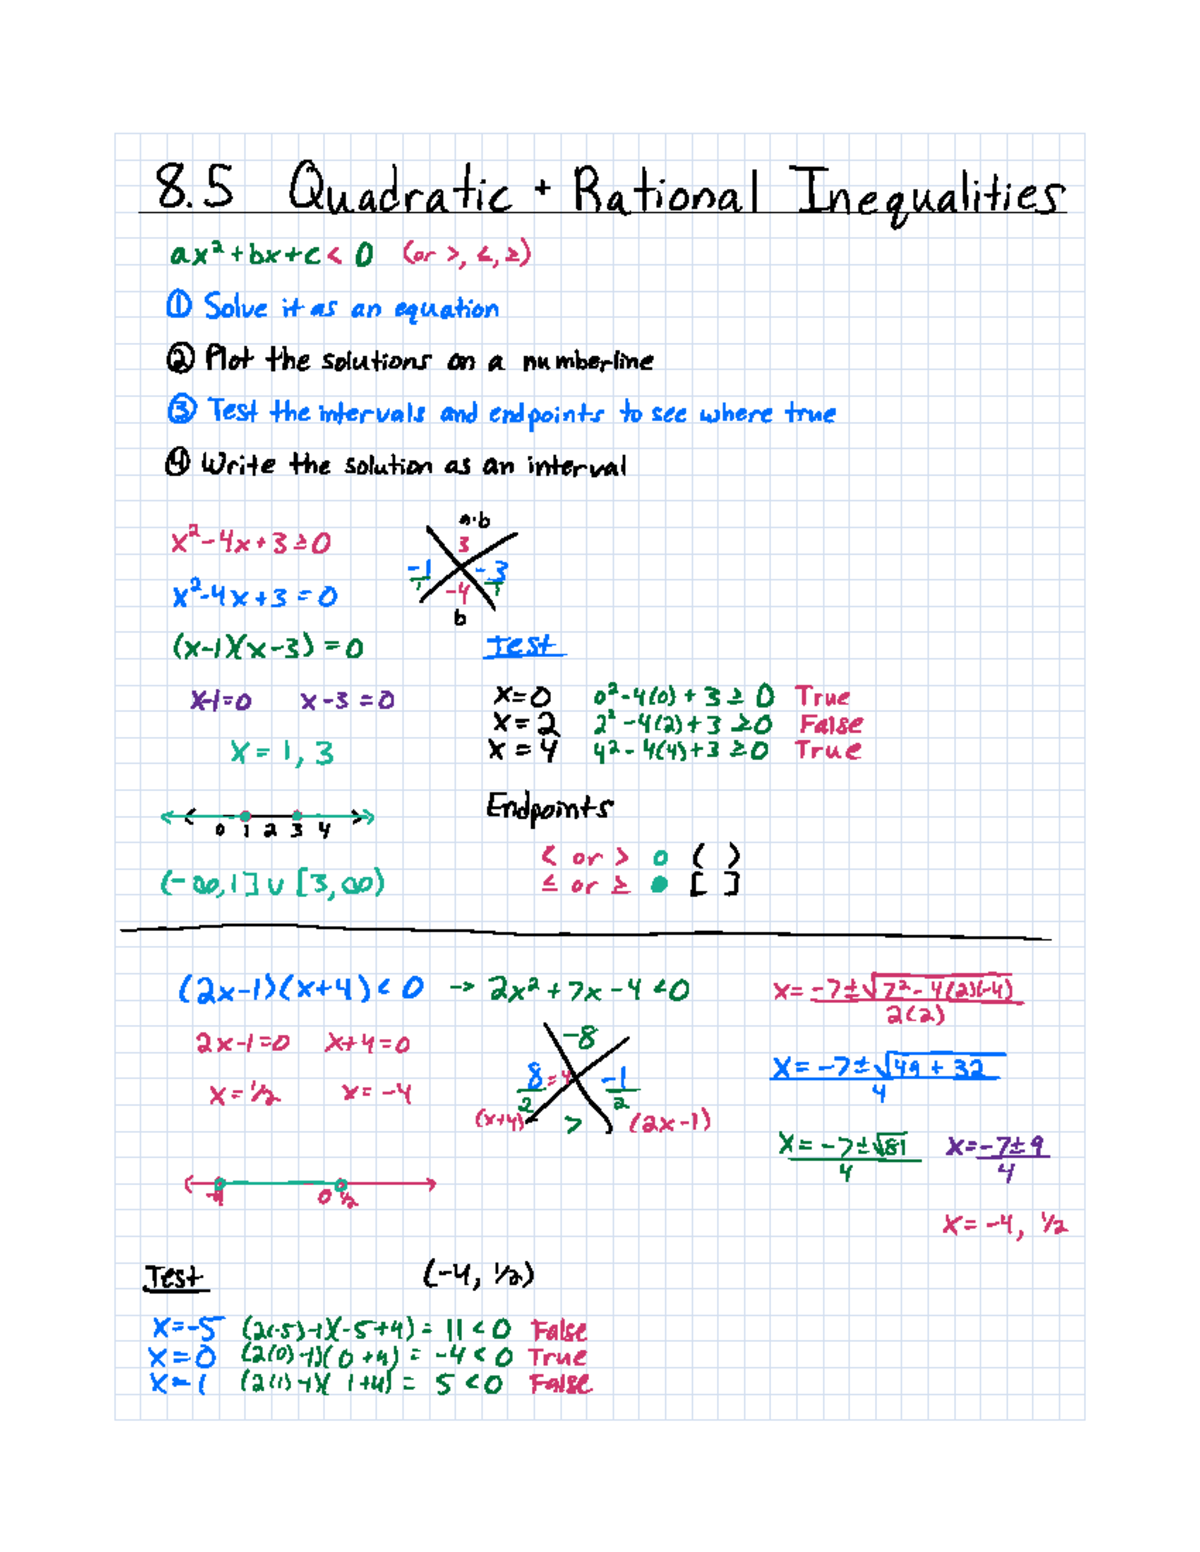 8.5 Quadratic + Rational Inequalities
ax² + bx + c < 0 (or >, ≤, ≥)
① Solve it as an equation
② Plot the solutions on a numberline
③ Test the intervals and endpoints to see where true
④ Write the solution as an interval
x² - 4x + 3 ≥ 0
x² - 4x + 3 = 0
(x-1)(x-3) = 0
x-1=0 x-3=0
x = 1, 3
0 1 2 3 4
(-∞, 1] ∪ [3, ∞)
a·b
3
-1/1 -3/1
-4
b
Test
x=0 0² - 4(0) + 3 ≥ 0 True
x=2 2² - 4(2) + 3 ≥ 0 False
x=4 4² - 4(4) + 3 ≥ 0 True
Endpoints
< or > ○ ( )
≤ or ≥ ● [ ]
(2x-1)(x+4) < 0 → 2x² + 7x - 4 < 0
2x-1=0 x+4=0
x=½ x=-4
-4 0 ½
-8
8/2 = 4 -1/2
(x+4) 7 (2x-1)
x = -7±√7² - 4(2)(-4)
2(2)
x = -7±√49 + 32
4
x = -7±√81
4
x = -7±9
4
x = -4, ½
Test (-4, ½)
x=-5 (2(-5)-1)(-5+4) = 11 < 0 False
x=0 (2(0)-1)(0+4) = -4 < 0 True
x=1 (2(1)-1)(1+4) = 5 < 0 False